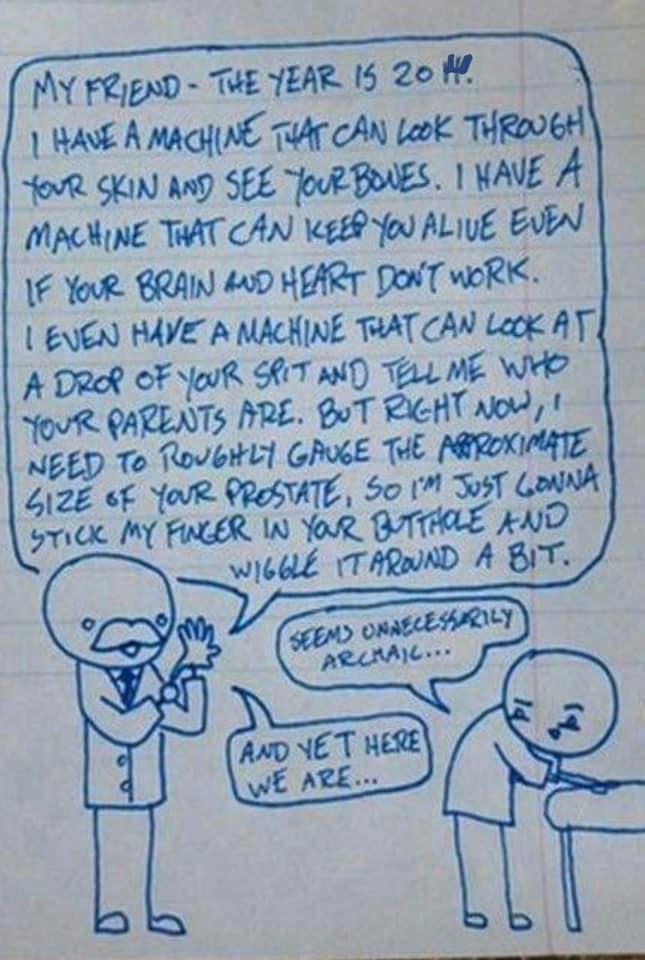 MY FRIEND - THE YEAR IS 20
I HAVE A MACHINE THAT CAN LOOK THROUGH
YOUR SKIN AND SEE YOUR BONES. I HAVE A
MACHINE THAT CAN KEEP YOU ALIVE EVEN
IF YOUR BRAIN AND HEART DON'T WORK.
I EVEN HAVE A MACHINE THAT CAN LOOK AT
A DROP OF YOUR SPIT AND TELL ME WHO
YOUR PARENTS ARE. BUT RIGHT NOW, I
NEED TO ROUGHLY GAUGE THE APPROXIMATE
SIZE OF YOUR PROSTATE, SO I'M JUST GONNA
STICK MY FINGER IN YOUR BUTTHOLE AND
WIGGLE IT AROUND A BIT.
SEEMS UNNECESSARILY
ARCHAIC...
AND YET HERE
WE ARE...